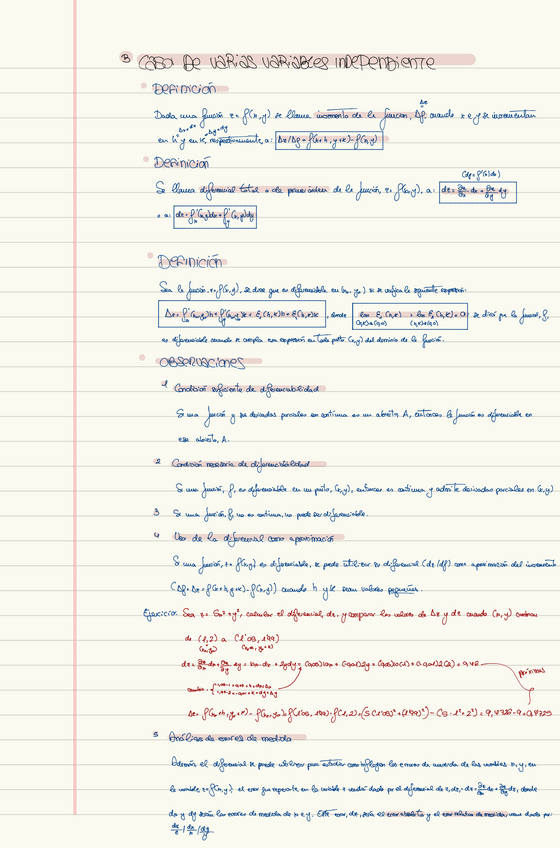 B Caso De varias variables independiente
Definición
Δz
Dada una función z = f(x,y) se llama incremento de la función, Δf, cuando x e y se incrementan
en h y en k, respectivamente, a: Δz/Δf = f(x+h, y+k) - f(x,y)
Definición
(dy = f'(x)dx)
Se llama diferencial total o de primer orden de la función, z = f(x,y), a: dz = ∂z/∂x dx + ∂z/∂y dy
o a: dz = f'x(x,y)dx + f'y(x,y)dy
Definición
Sea la función, z = f(x,y), se dice que es diferenciable en (x₀, y₀) si se verifica la siguiente expresión:
Δz = f'x(x₀,y₀)h + f'y(x₀,y₀)k + ε₁(h,k)h + ε₂(h,k)k, donde lim ε₁(h,k) = lim ε₂(h,k) = 0; se dice que la función, f,
(h,k)→(0,0) (h,k)→(0,0)
es diferenciable cuando se cumpla esa expresión en todo punto (x,y) del dominio de la función.
Observaciones
1 Condición suficiente de diferenciabilidad
Si una función y sus derivadas parciales son continua en un abierto A, entonces la función es diferenciable en
ese abierto, A.
2 Condición necesaria de diferenciabilidad
Si una función, f, es diferenciable en un punto, (x,y), entonces es continua y admite derivadas parciales en (x,y)
3 Si una función, f, no es continua, no puede ser diferenciable.
4 Uso de la diferencial como aproximación
Si una función, z = f(x,y) es diferenciable, se puede utilizar su diferencial (dz/df) como aproximación del incremento
(Δf = Δz = f(x+h, y+k) - f(x,y)) cuando h y k sean valores pequeños.
Ejercicio: Sea z = 5x² + y², calcular el diferencial, dz, y comparar los valores de Δz y dz cuando (x,y) cambian
de (1,2) a (1'05, 1'99)
(x₀,y₀) (x₀+h, y₀+k)
próximos
5 Análisis de errores de medida
Además el diferencial se puede utilizar para estudiar como influyen los errores de medida de las variables x, y, en
la variable z = f(x,y): el error que repercute en la variable z vendrá dado por el diferencial de z, dz = ∂z/∂x dx + ∂z/∂y dy, donde
dx y dy serán los errores de medida de x e y. Este error, dz, sería el error absoluto y el error relativo de medida, viene dado por:
dz/z | dx/x | dy/y